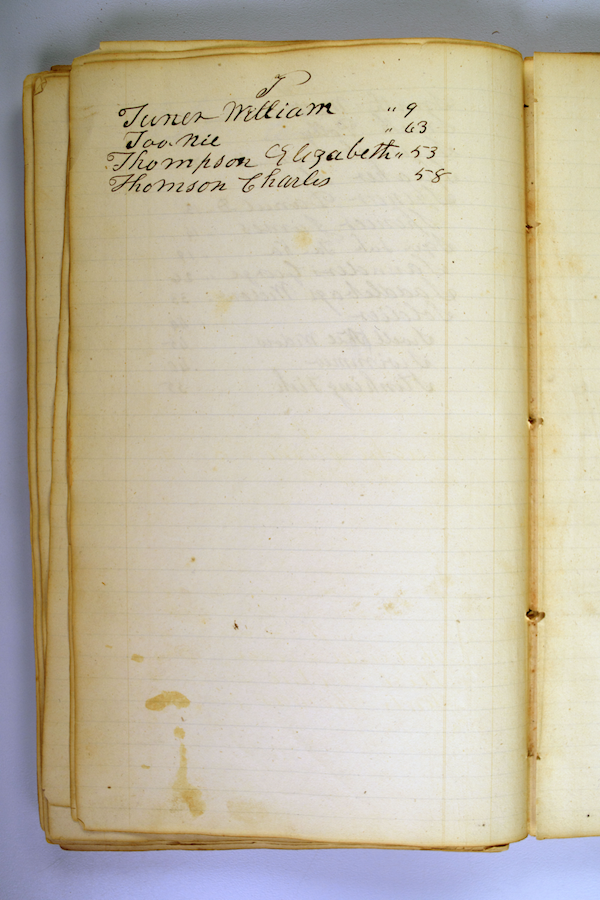 T
Tuner William " 9
Too nie " 63
Thompson Elizabeth " 53
Thomson Charlis 58